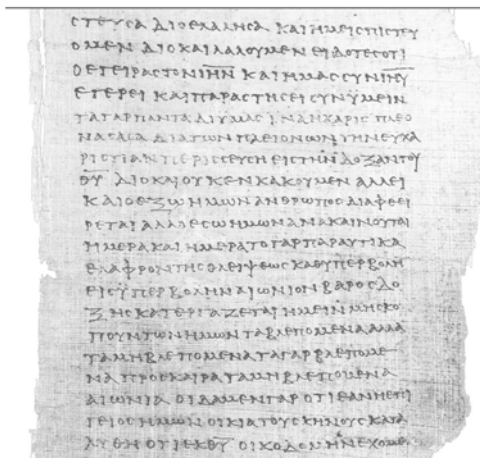 CΤΕΥCΑ ΔΙΟΕΛΑΛΗCΑ ΚΑΙΗΜΕΙCΠΙCΤΕΥ
ΟΜΕΝ ΔΙΟΚΑΙΛΑΛΟΥΜΕΝ ΕΙΔΟΤΕCΟΤΙ
ΟΕΓΕΙΡΑCΤΟΝΙ̅Η̅Ν̅ ΚΑΙΗΜΑCCΥΝΙ̅Η̅Υ̅
ΕΓΕΡΕΙ ΚΑΙΠΑΡΑCΤΗCΕΙCΥΝΥΜΕΙΝ
ΤΑΓΑΡΠΑΝΤΑΔΙΥΜΑC ΙΝΑΗΧΑΡΙCΠΛΕΟ
ΝΑCΑCΑ ΔΙΑΤΩΝΠΛΕΙΟΝΩΝΤΗΝΕΥΧΑ
ΡΙCΤΙΑΝΠΕΡΙCCΕΥCΗΕΙCΤΗΝΔΟΞΑΝΤΟΥ
Θ̅Υ̅ ΔΙΟΚΑΙΟΥΚΕΝΚΑΚΟΥΜΕΝ ΑΛΛΕΙ
ΚΑΙΟΕΞΩΗΜΩΝΑΝΘΡΩΠΟCΔΙΑΦΘΕΙ
ΡΕΤΑΙΑΛΛΟΕCΩΗΜΩΝΑΝΑΚΑΙΝΟΥΤΑΙ
ΗΜΕΡΑΚΑΙΗΜΕΡΑΤΟΓΑΡΠΑΡΑΥΤΙΚΑ
ΕΛΑΦΡΟΝΤΗCΘΛΕΙΨΕΩCΚΑΘΥΠΕΡΒΟΛΗ
ΕΙCΥΠΕΡΒΟΛΗΝΑΙΩΝΙΟΝΒΑΡΟCΔΟ
ΞΗCΚΑΤΕΡΓΑΖΕΤΑΙΗΜΕΙΝΜΗCΚΟ
ΠΟΥΝΤΩΝΗΜΩΝΤΑΒΛΕΠΟΜΕΝΑΑΛΛΑ
ΤΑΜΗΒΛΕΠΟΜΕΝΑΤΑΓΑΡΒΛΕΠΟΜΕ
ΝΑΠΡΟCΚΑΙΡΑΤΑΜΗΒΛΕΠΟΜΕΝΑ
ΑΙΩΝΙΑ ΟΙΔΑΜΕΝΓΑΡΟΤΙΕΑΝΗΕΠΙ
ΓΕΙΟCΗΜΩΝΟΙΚΙΑΤΟΥCΚΗΝΟΥCΚΑΤΑ
ΛΥΘΗΟΤΙΕΚΘ̅Υ̅ ΟΙΚΟΔΟΜΗΝΕΧΟΜΕ